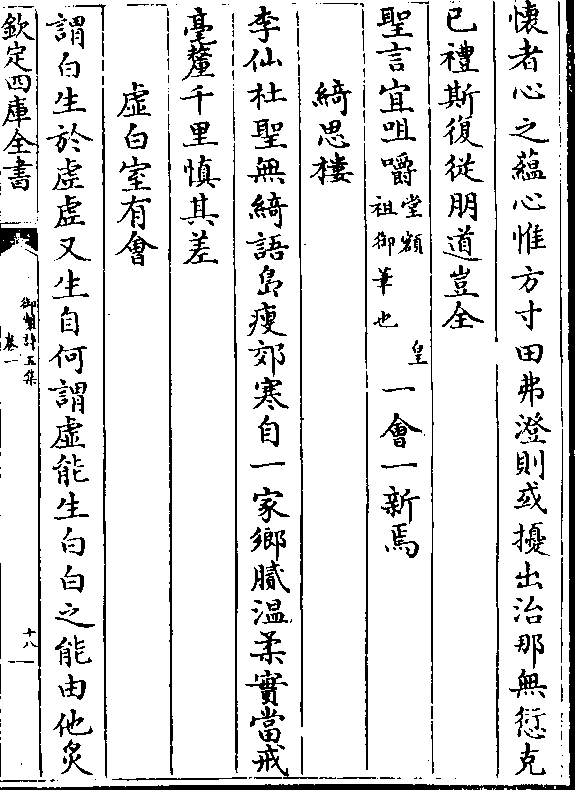 懷者心之蘊心惟方寸田弗澄則或擾出治那無愆克
已禮斯復從朋道豈全
聖言宜咀嚼堂額皇祖御筆也一會一新焉
綺思樓
李仙杜聖無綺語島瘦郊寒自一家鄉膩溫柔實當戒
毫釐千里慎其差
虛白室有會
謂白生於虛虛又生自何謂虛能生白白之能由他炙
欽定四庫全書
御製詩五集
卷一
十八